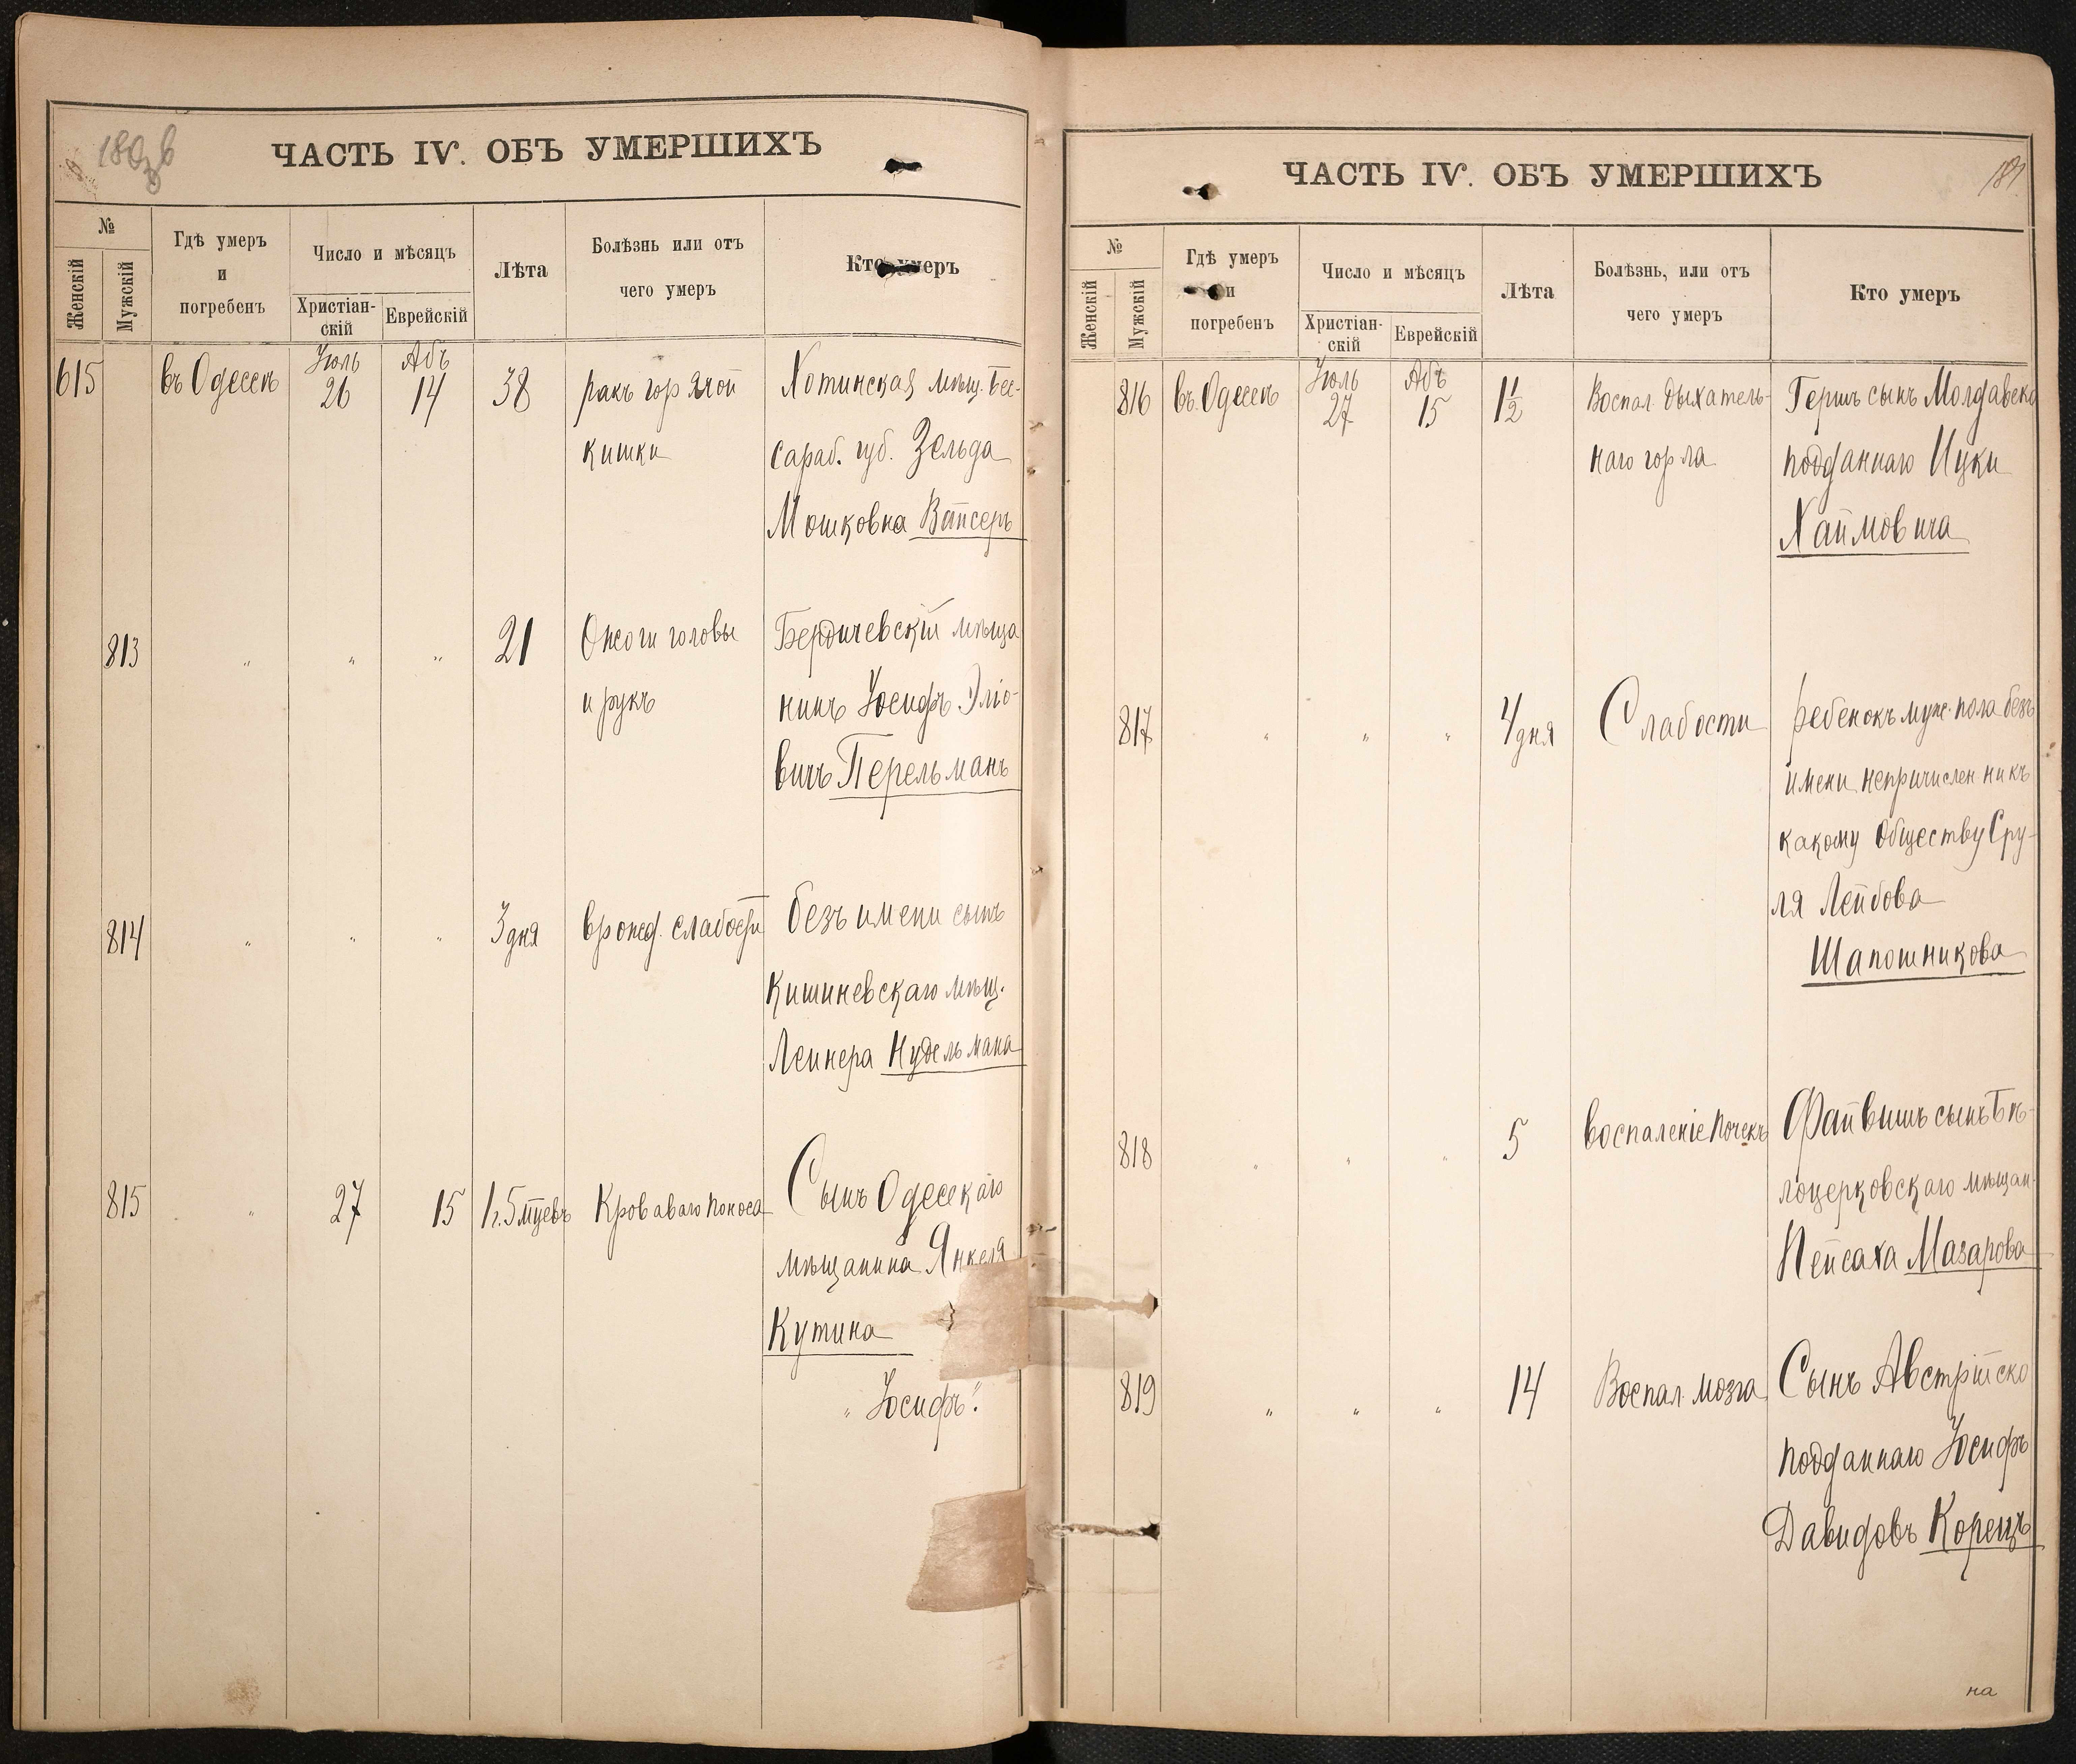 ЧАСТЬ IV. ОБЪ УМЕРШИХЪ
№
Женскій
Мужскій
Гдѣ умеръ
и
погребенъ
Число и мѣсяцъ
Христіан-
скій
Еврейскій
Лѣта
Болѣзнь или отъ
чего умеръ
Кто умеръ
615 въ Одессѣ Іюль 26 Абъ 14 38 ракъ горзлой Хотинская мѣщ. Бес-
кишки сараб. губ. Зельда
Мошковна Вайсеръ
813 " " " 21 Ожоги головы Бердичевскій мѣща
и рукъ нинъ Іосифъ Эліо-
вичъ Перельманъ
814 " " " 3 дня врожд. слабости безъ имени сынъ
Кишиневскаго мѣщ.
Лейнера Нудельмана
815 " 27 15 1г. 5 мцевъ Кроваваго поноса Сынъ Одесскаго
мѣщанина Янкеля
Кутина
"Іосифъ".
ЧАСТЬ IV. ОБЪ УМЕРШИХЪ
181
№
Женскій
Мужскій
Гдѣ умеръ
и
погребенъ
Число и мѣсяцъ
Христіан-
скій
Еврейскій
Лѣта
Болѣзнь, или отъ
чего умеръ
Кто умеръ
816 въ Одессѣ Іюль 27 Абъ 15 1½ Воспал. дыхатель- Гершъ сынъ Молдавско
наго горла подданнаго Ицки
Хаймовича
817 " " " 4 дня Слабости ребенокъ муж. пола безъ
имени непричислен никъ
какому обществу Сру-
ля Лейбова
Шапошникова
818 " " " 5 воспаленіе почекъ Файвишъ сынъ Бѣ-
лоцерковскаго мѣщан.
Пейсаха Мазарова
819 " " " 14 Воспал. мозга Сынъ Австрійско
подданнаго Іосифъ
Давидовъ Корецъ
на